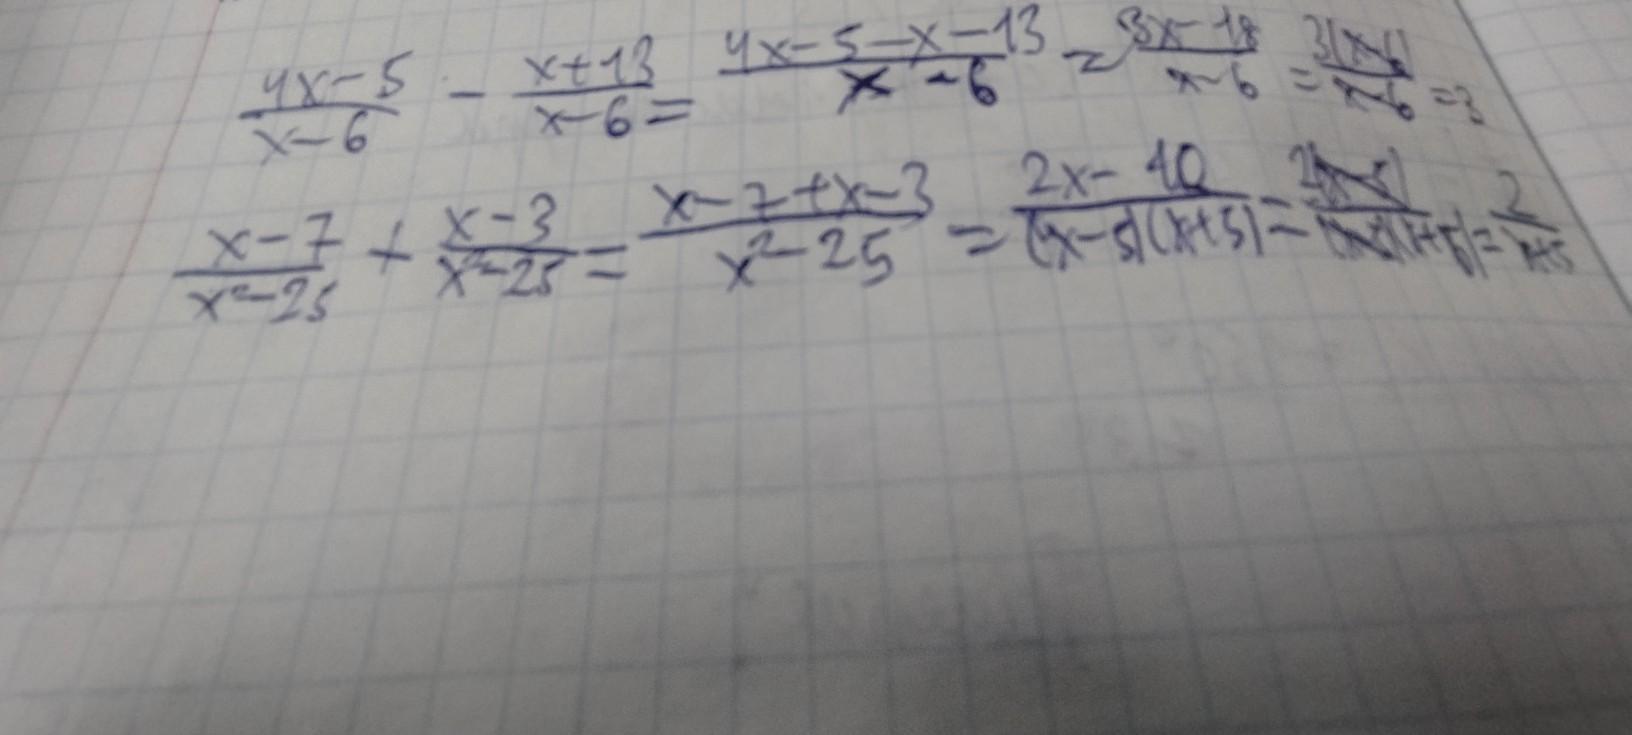 (4x-5)/(x-6) - (x+13)/(x-6) = (4x-5-x-13)/(x-6) = (3x-18)/(x-6) = 3(x-6)/(x-6) = 3
(x-7)/(x²-25) + (x-3)/(x²-25) = (x-7+x-3)/(x²-25) = (2x-10)/((x-5)(x+5)) = 2(x-5)/((x-5)(x+5)) = 2/(x+5)